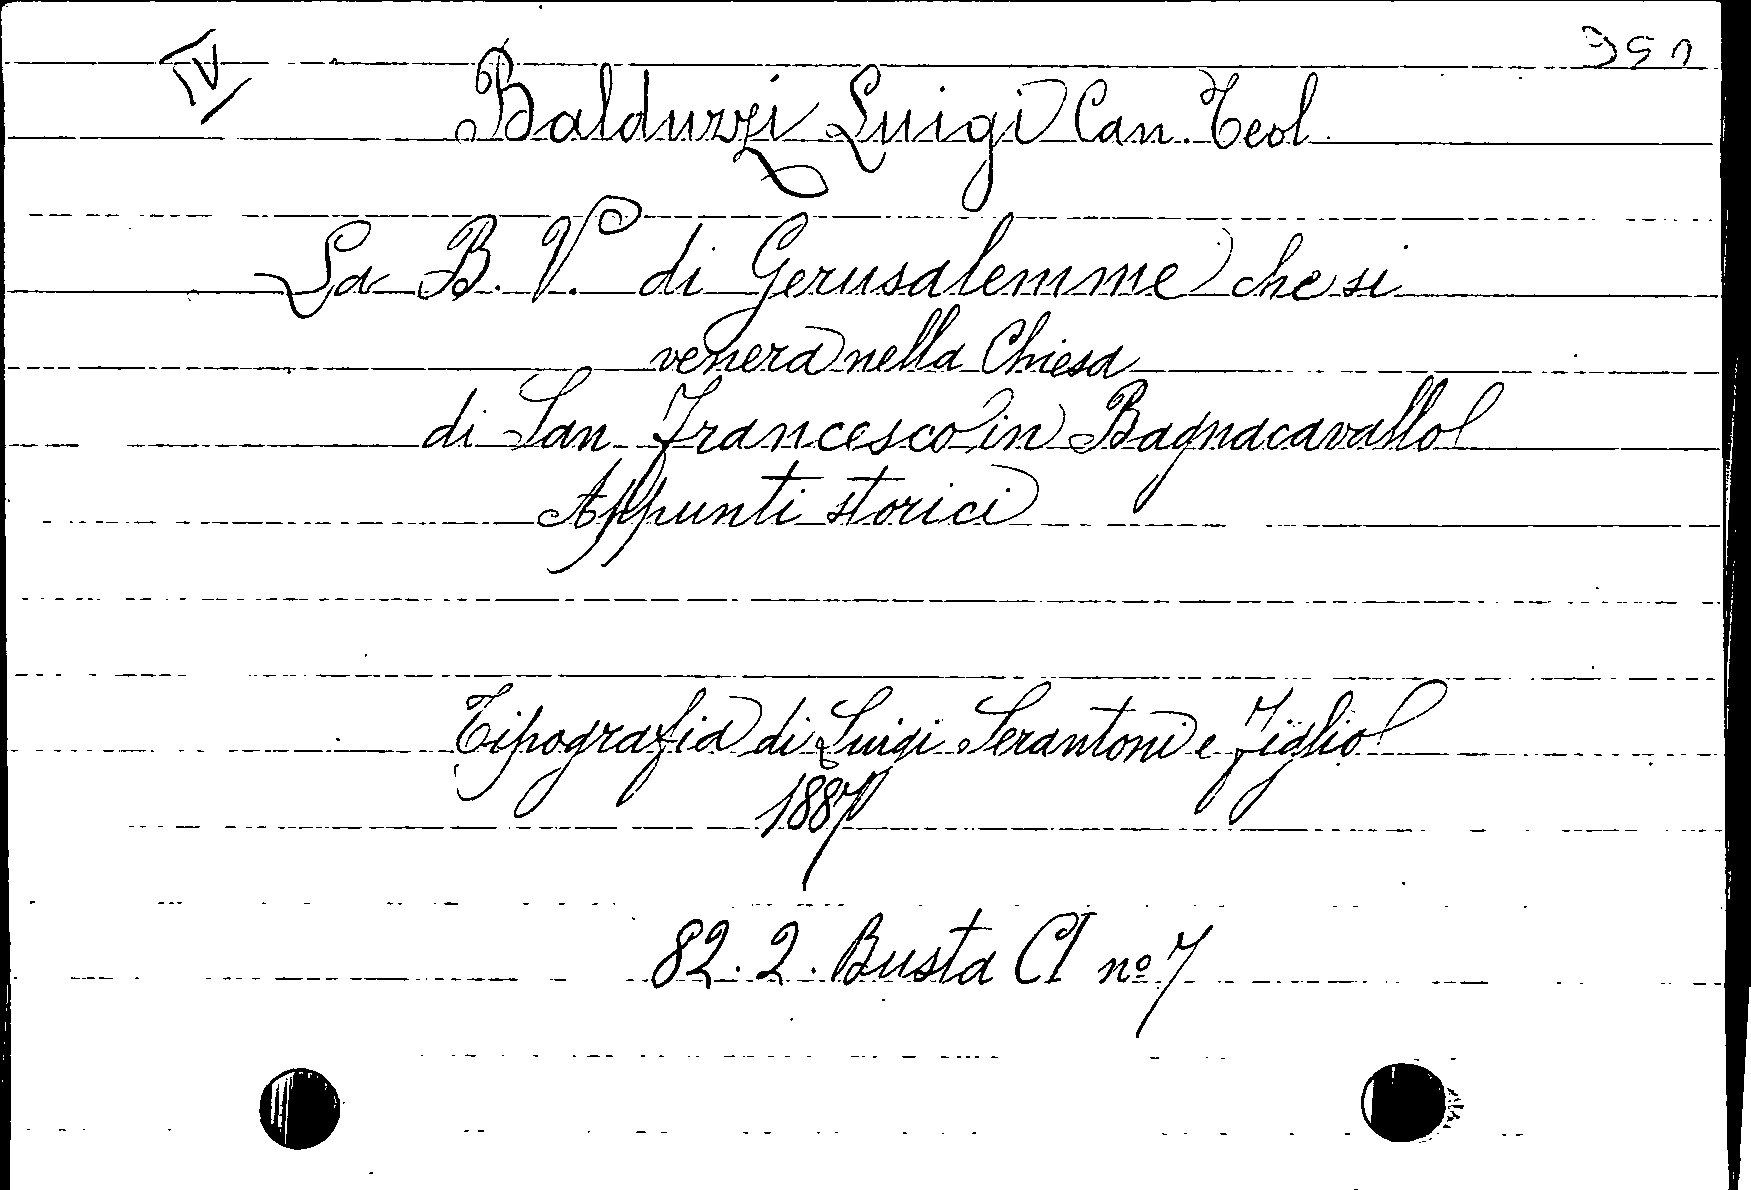 IV
Balduzzi Luigi Can. Teol.
La B. V. di Gerusalemme che si
venera nella Chiesa
di San Francesco in Bagnacavallo
Appunti storici
Tipografia di Luigi Serantoni e Figlio
1887
82. 2. Busta CI nº 7